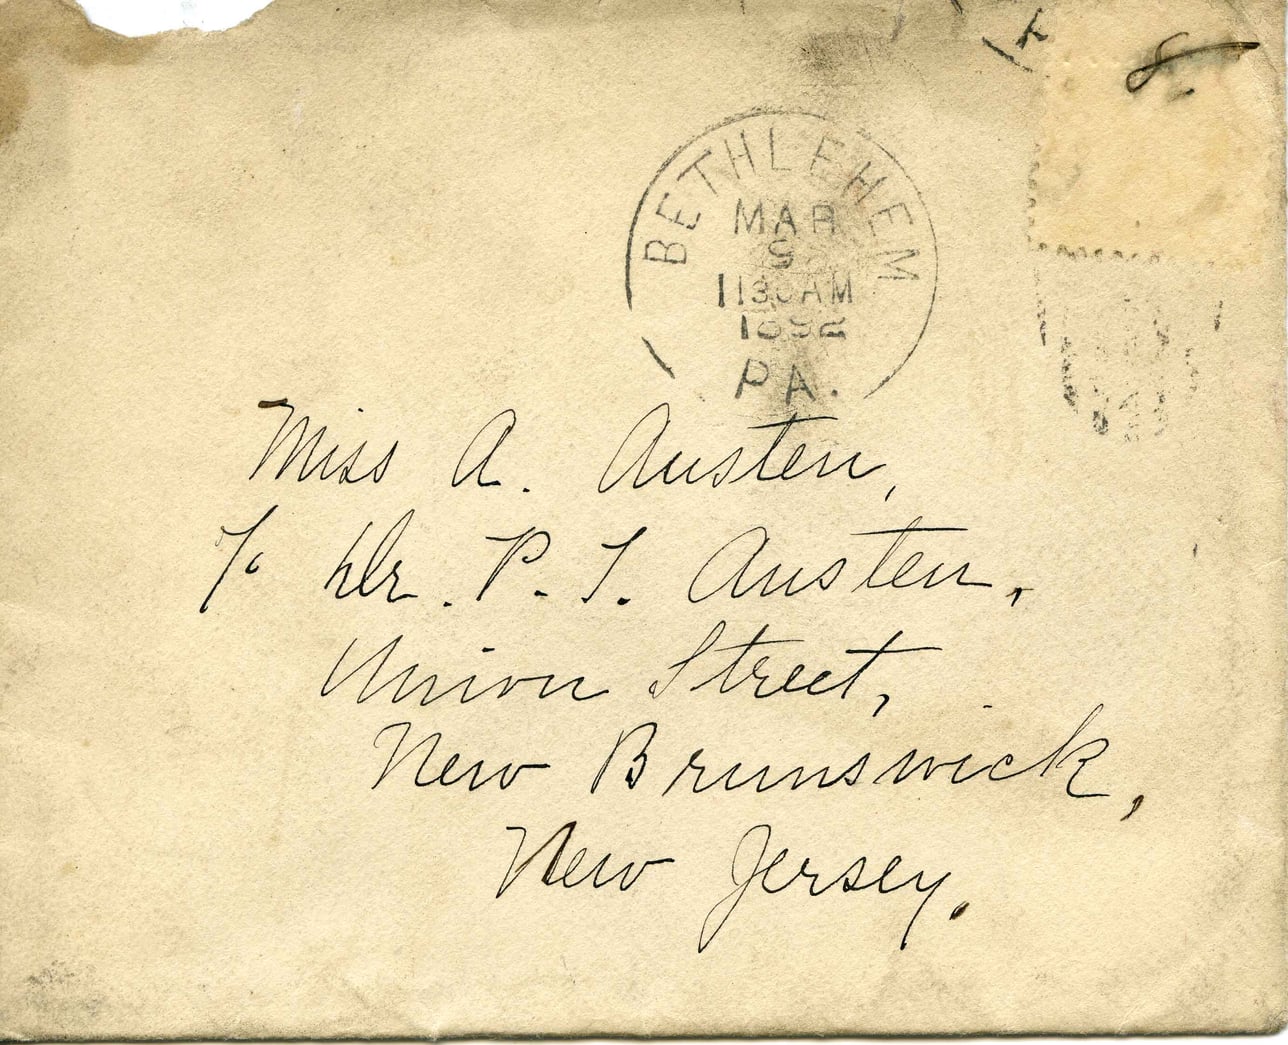 BETHLEHEM
MAR
9
1130AM
1892
PA.
Miss A. Austen,
℅ Dr. P. T. Austen,
Union Street,
New Brunswick,
New Jersey.